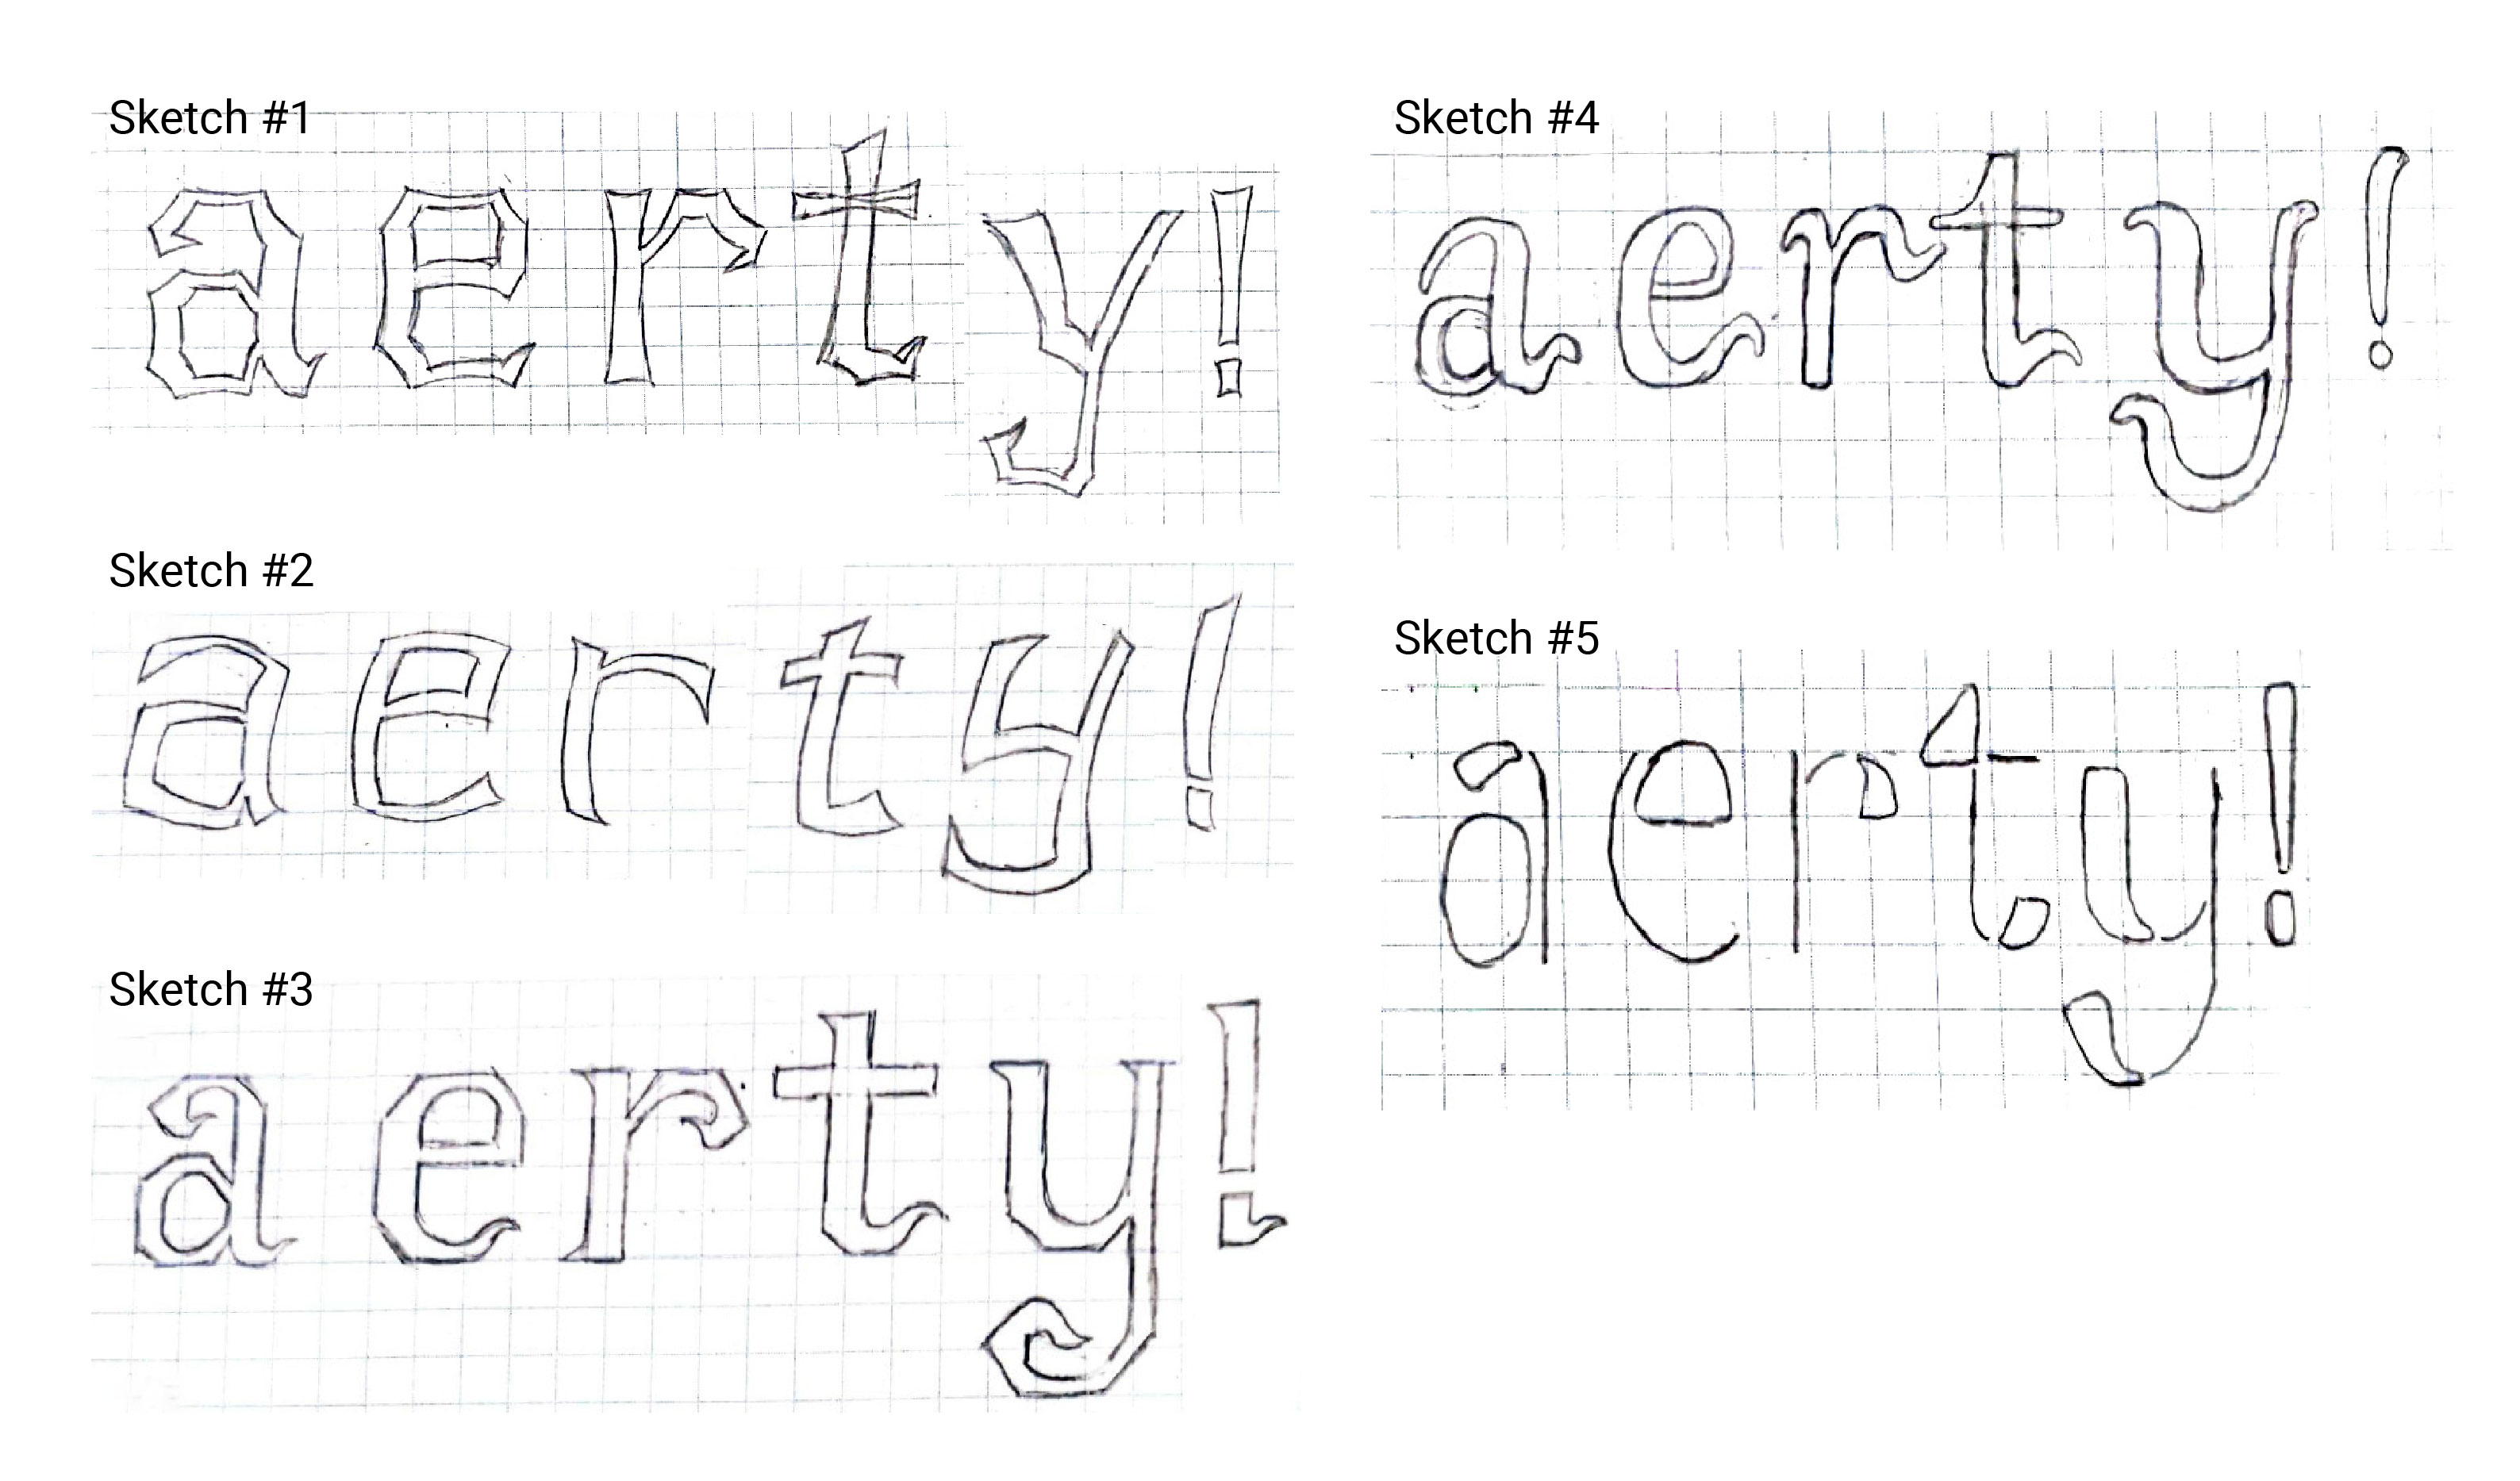 Sketch #1
aerty!
Sketch #2
aerty!
Sketch #3
aerty!
Sketch #4
aerty!
Sketch #5
aerty!